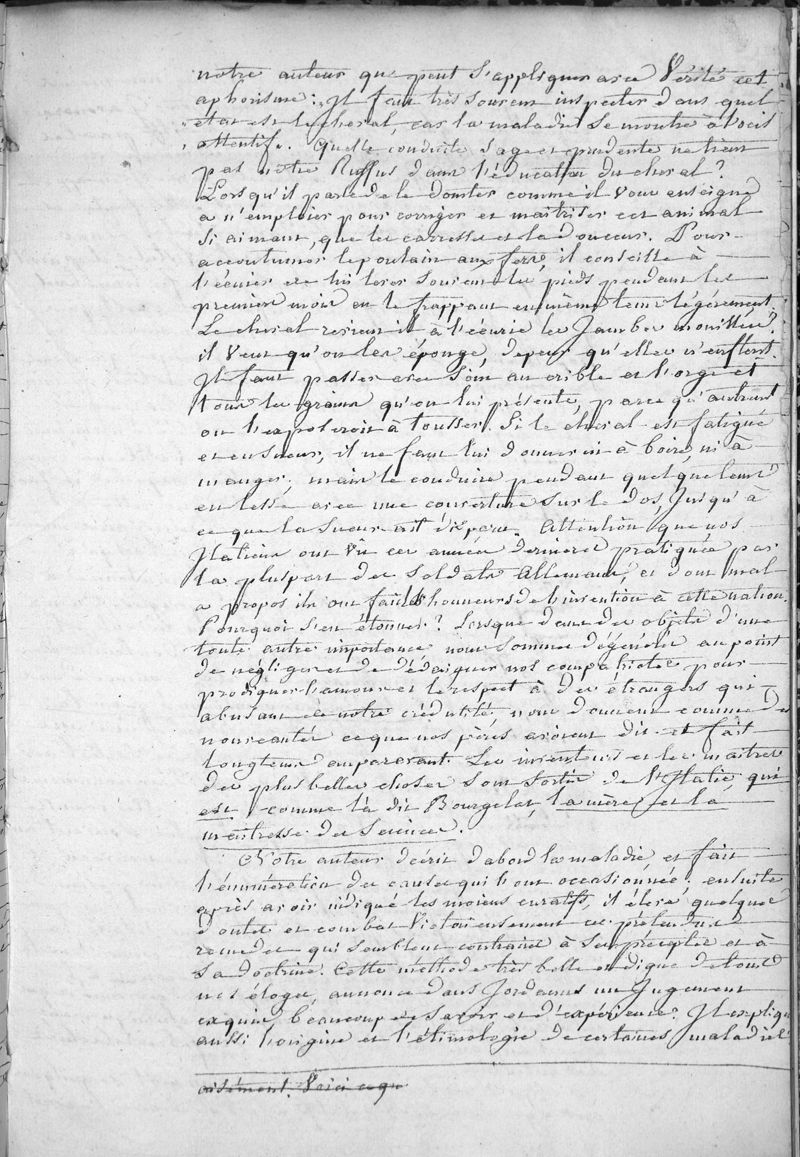 notre auteur que peut s'appliquer avec Vérité cet
aphorisme: Il faut très souvent inspecter dans quel
état est le cheval, car la maladie se montre à l'œil
attentif. Quelle conduite sage et prudente ne tient
pas nôtre Ruffus dans l'éducation du cheval?
Lorsqu'il parle de le domter comme il vous enseigne
a n'emploier pour corriger et maitriser cet animal
si aimant, que les carresses et la douceur. Pour
accoutumer le poulain aux fers, il conseille à
l'écuier de lui lever souvent les pieds pendant les
premiers mois en le frappant en même tems légérement.
Le cheval revient il à l'écurie les Jambes mouillées?
il Veut qu'on les éponge, depeur qu'elles n'enflent.
Il faut passer avec soin au crible et l'orge et
tous les grains qu'on lui présente, parce qu'autrement
on l'exposeroit à tousser. Si le cheval est fatigué
et en sueur, il ne faut lui donner ni à boire ni à
manger; mais le conduire pendant quelque tems
en lesse avec une couverture sur le dos, Jusqu'à
ce que la sueur ait disparu. Attention que nos
Italiens ont Vû ces années dernieres pratiquée par
la pluspart des soldats Allemans, et dont mal
a propos ils ont fait les honneurs de l'invention à cette nation.
Pourquoi s'en étonner? Lorsque dans des objets d'une
toute autre importance nous sommes dégénérés au point
de négliger et de dédaigner nos compatriotes pour
prodiguer l'amour et le respect à des étrangers qui
abusant de notre crédulité, nous donnent comme des
nouveautés ce que nos pères avoient dit et fait
longtems auparavant. Les inventeurs et les maitres
des plus belles choses sont sortis de l'Italie, qui
est, comme l'a dit Bourgelat, la mère et la
maîtresse des Sciences.
Notre auteur décrit d'abord la maladie, et fait
l'énumération des causes qui l'ont occasionnée; ensuite
après avoir indiqué les moiens curatifs, il élève quelques
doutes et combat Victorieusement ces prétendus
remedes qui semblent contraires à ses préceptes et à
sa doctrine. Cette méthode très belle et digne de tous
nos éloges, annonce dans Jordanus un Jugement
exquis, beaucoup de savoir et d'expérience. Il explique
aussi l'origine et l'étimologie de certaines maladies
aisément. Voici ce qu